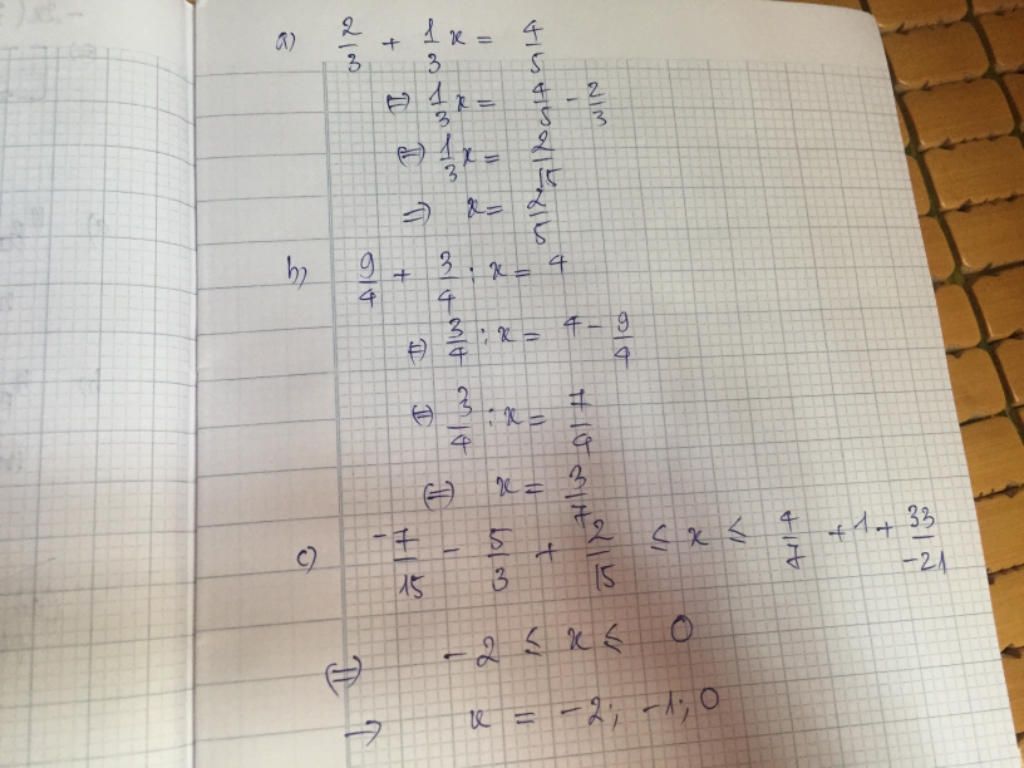 a) 2/3 + 1/3 x = 4/5
⇔ 1/3 x = 4/5 - 2/3
⇔ 1/3 x = 2/15
⇒ x = 2/5
b) 9/4 + 3/4 : x = 4
⇔ 3/4 : x = 4 - 9/4
⇔ 3/4 : x = 7/4
⇔ x = 3/7
c) -7/15 - 5/3 + 2/15 ≤ x ≤ 4/7 + 1 + 33/-21
⇔ -2 ≤ x ≤ 0
→ x = -2; -1; 0